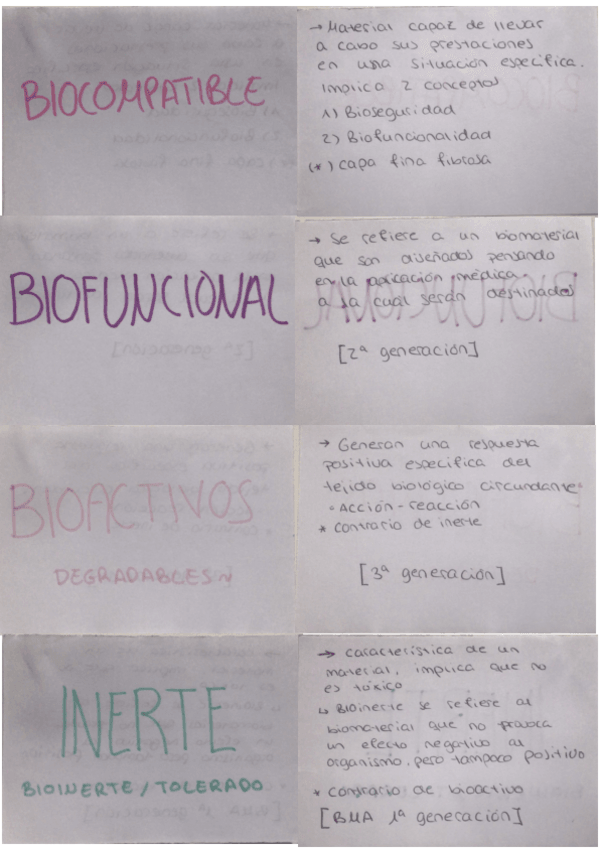 BIOCOMPATIBLE
→ Material capaz de llevar
a cabo sus prestaciones
en una situación específica.
Implica 2 conceptos
1) Bioseguridad
2) Biofuncionalidad
(*) capa fina fibrosa
BIOFUNCIONAL
→ Se refiere a un biomaterial
que son diseñados pensando
en la aplicación médica
a la cual serán destinados
[2ª generación]
BIOACTIVOS
DEGRADABLES ~
→ Generan una respuesta
positiva específica del
tejido biológico circundante
◦ Acción-reacción
* contrario de inerte
[3ª generación]
INERTE
BIOINERTE / TOLERADO
→ característica de un
material, implica que no
es tóxico
↳ Bioinerte se refiere al
biomaterial que no provoca
un efecto negativo al
organismo, pero tampoco positivo
* contrario de bioactivo
[BMA 1ª generación]